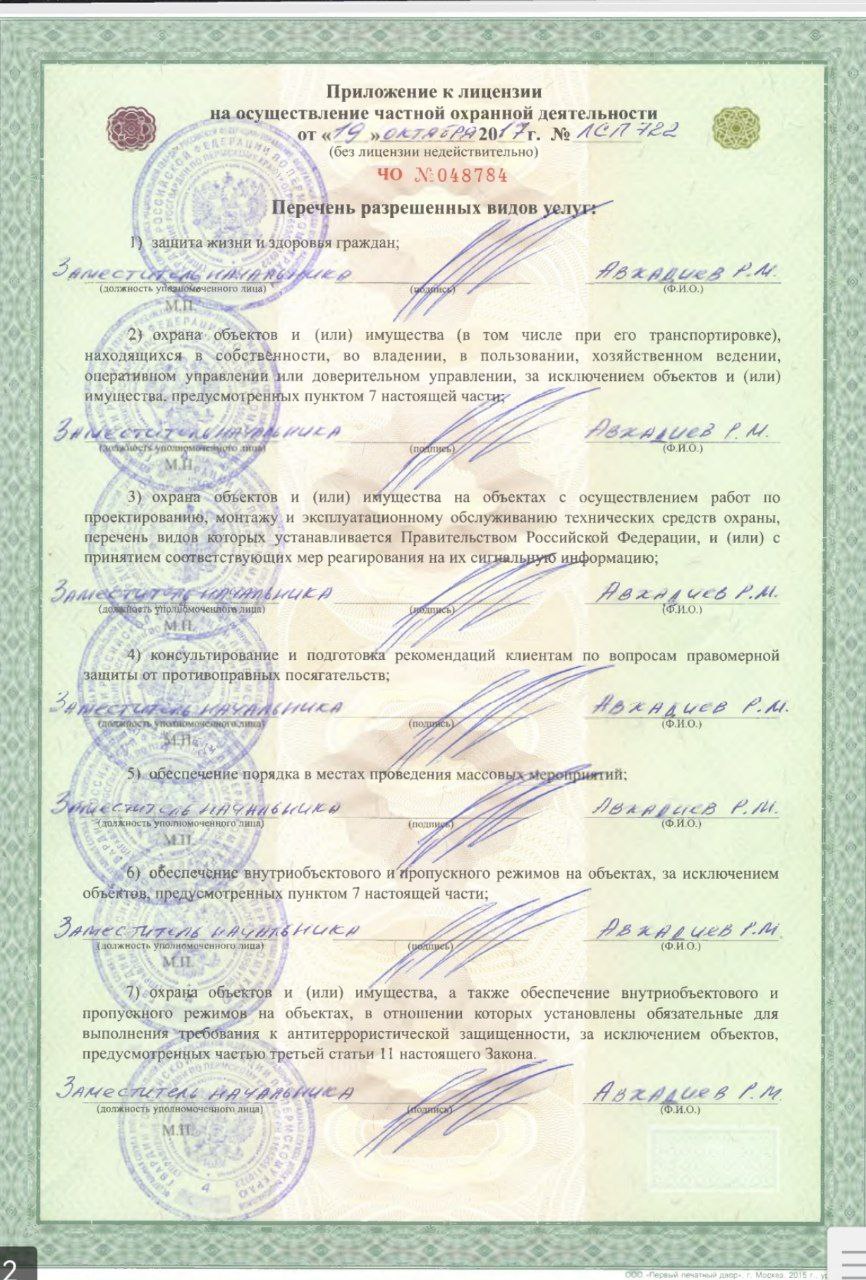 Приложение к лицензии
на осуществление частной охранной деятельности
от «19» октября 2017 г. № ЛСП 722
(без лицензии недействительно)
ЧО №048784
Перечень разрешенных видов услуг:
1) защита жизни и здоровья граждан;
Заместитель начальника Авкадиев Р.М.
(должность уполномоченного лица) (подпись) (Ф.И.О.)
М.П.
2) охрана объектов и (или) имущества (в том числе при его транспортировке),
находящихся в собственности, во владении, в пользовании, хозяйственном ведении,
оперативном управлении или доверительном управлении, за исключением объектов и (или)
имущества, предусмотренных пунктом 7 настоящей части;
Заместитель начальника Авкадиев Р.М.
(должность уполномоченного лица) (подпись) (Ф.И.О.)
М.П.
3) охрана объектов и (или) имущества на объектах с осуществлением работ по
проектированию, монтажу и эксплуатационному обслуживанию технических средств охраны,
перечень видов которых устанавливается Правительством Российской Федерации, и (или) с
принятием соответствующих мер реагирования на их сигнальную информацию;
Заместитель начальника Авкадиев Р.М.
(должность уполномоченного лица) (подпись) (Ф.И.О.)
М.П.
4) консультирование и подготовка рекомендаций клиентам по вопросам правомерной
защиты от противоправных посягательств;
Заместитель начальника Авкадиев Р.М.
(должность уполномоченного лица) (подпись) (Ф.И.О.)
М.П.
5) обеспечение порядка в местах проведения массовых мероприятий;
Заместитель начальника Авкадиев Р.М.
(должность уполномоченного лица) (подпись) (Ф.И.О.)
М.П.
6) обеспечение внутриобъектового и пропускного режимов на объектах, за исключением
объектов, предусмотренных пунктом 7 настоящей части;
Заместитель начальника Авкадиев Р.М.
(должность уполномоченного лица) (подпись) (Ф.И.О.)
М.П.
7) охрана объектов и (или) имущества, а также обеспечение внутриобъектового и
пропускного режимов на объектах, в отношении которых установлены обязательные для
выполнения требования к антитеррористической защищенности, за исключением объектов,
предусмотренных частью третьей статьи 11 настоящего Закона.
Заместитель начальника Авкадиев Р.М.
(должность уполномоченного лица) (подпись) (Ф.И.О.)
М.П.
2
ООО «Первый печатный двор», г. Москва, 2015 г.,